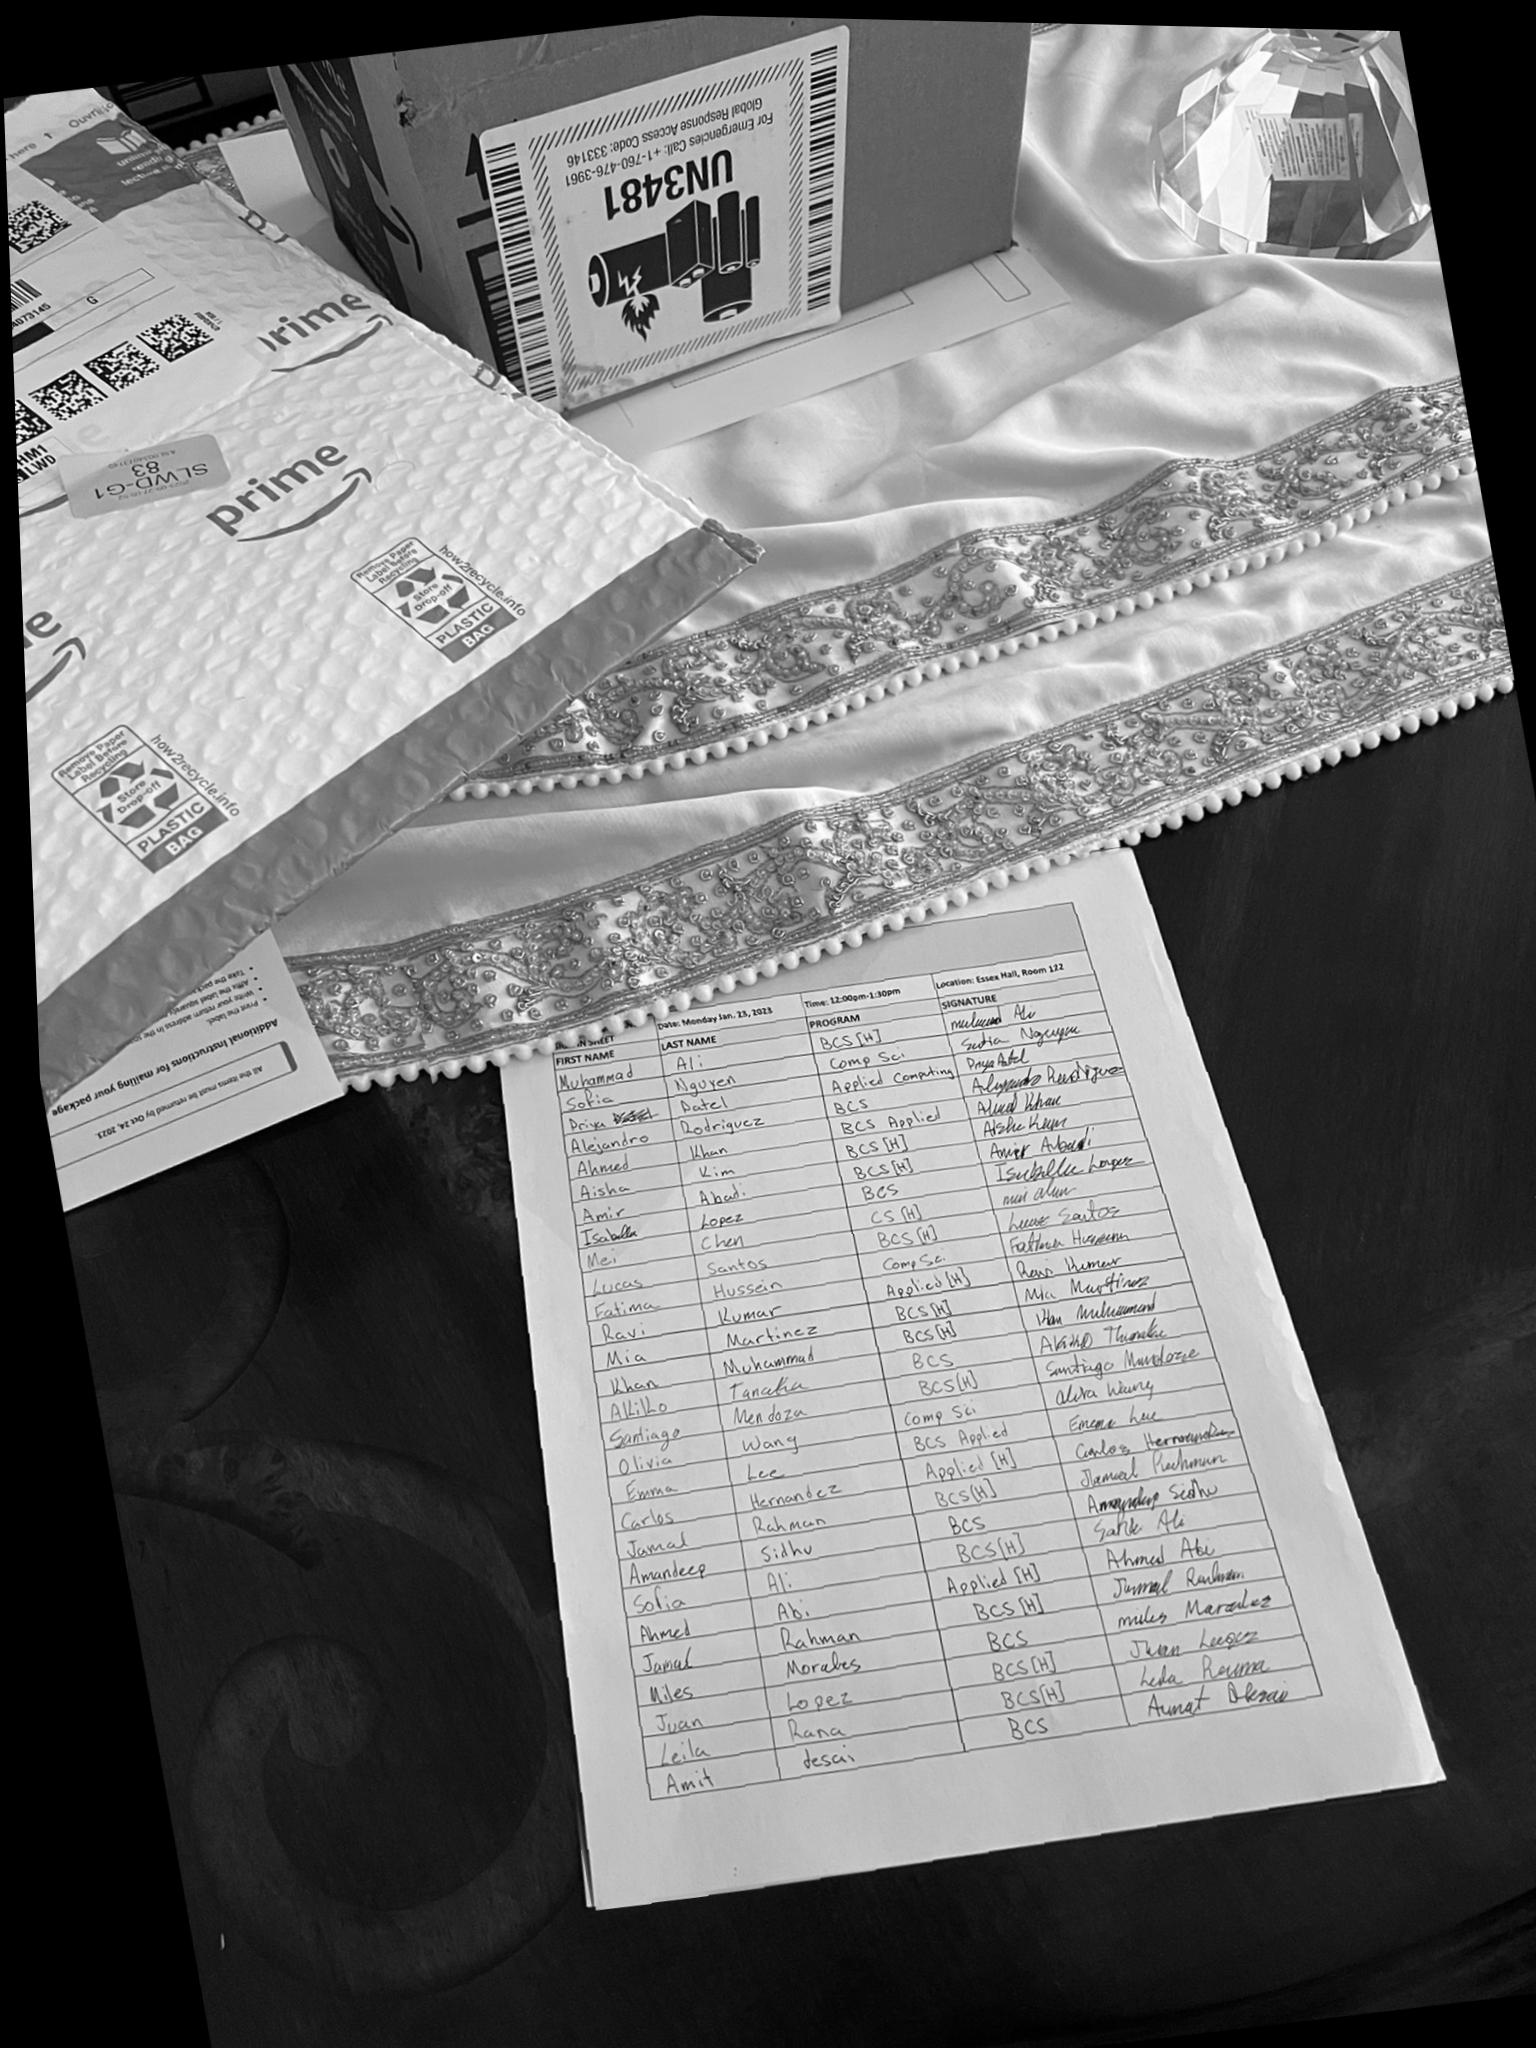 here
UN3481
For Emergencies Call: +1-760-476-3961
Global Response Access Code: 333146
4073145
G
prime
HM1
SLWD-G1
83
prime
Remove Paper
Label Before
Recycling
Store
Drop-off
PLASTIC
BAG
how2recycle.info
Remove Paper
Label Before
Recycling
Store
Drop-off
PLASTIC
BAG
how2recycle.info
All the items must be returned by Oct 24, 2023.
Additional Instructions for mailing your package
Print the label.
Write your return address in the
Affix the label squarely
Take the pack
SHEET Date: Monday Jan. 23, 2023 Time: 12:00pm-1:30pm Location: Essex Hall, Room 122
FIRST NAME LAST NAME PROGRAM SIGNATURE
Muhammad Ali BCS [H] Ali
Sofia Nguyen Comp Sci Sofia Nguyen
Priya Patel Applied Computing Priya Patel
Alejandro Rodriguez BCS Alejandro Rodriguez
Ahmed Khan BCS Applied Ahmed Khan
Aisha Kim BCS [H] Aisha Kim
Amir Abadi BCS [H] Amir Abadi
Isabella Lopez BCS Isabella Lopez
Mei Chen CS [H]
Lucas Santos BCS [H] Lucas Santos
Fatima Hussein Comp Sci Fatima Hussein
Ravi Kumar Applied [H] Ravi Kumar
Mia Martinez BCS [H] Mia Martinez
Khan Muhammad BCS [H] Khan Muhammad
Akiko Tanaka BCS Akiko Tanaka
Santiago Mendoza BCS [H] Santiago Mendoza
Olivia Wang Comp Sci Olivia Wang
Emma Lee BCS Applied Emma Lee
Carlos Hernandez Applied [H] Carlos Hernandez
Jamal Rahman BCS [H] Jamal Rahman
Amandeep Sidhu BCS Amandeep Sidhu
Sofia Ali BCS [H] Sofia Ali
Ahmed Abi Applied [H] Ahmed Abi
Jamal Rahman BCS [H] Jamal Rahman
Miles Morales BCS miles Morales
Juan Lopez BCS [H] Juan Lopez
Leila Rana BCS [H] Leila Rana
Amit desai BCS Amit Desai